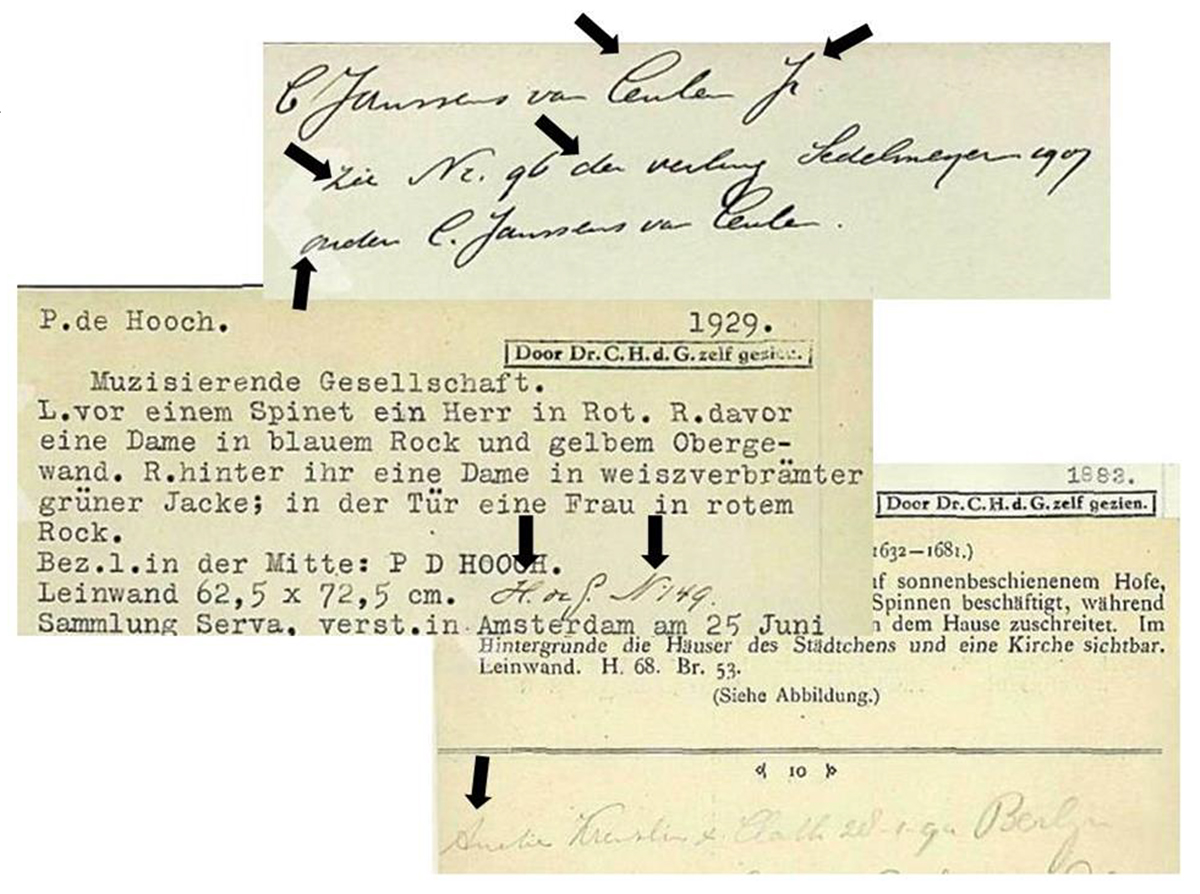 C Janssens van Ceulen Jr
Zie Nr. 96 der veiling Sedelmeyer 1907
onder C. Janssens van Ceulen.
P.de Hooch. 1929.
Door Dr. C. H. d. G. zelf gezien.
Muzisierende Gesellschaft.
L.vor einem Spinet ein Herr in Rot. R.davor
eine Dame in blauem Rock und gelbem Oberge-
wand. R.hinter ihr eine Dame in weiszverbrämter
grüner Jacke; in der Tür eine Frau in rotem
Rock.
Bez.l.in der Mitte: P D HOOCH.
Leinwand 62,5 x 72,5 cm. H. de G. N 149.
Sammlung Serva, verst.in Amsterdam am 25 Juni
1883.
Door Dr. C. H. d. G. zelf gezien.
1632—1681.)
f sonnenbeschienenem Hofe,
Spinnen beschäftigt, während
n dem Hause zuschreitet. Im
Hintergrunde die Häuser des Städtchens und eine Kirche sichtbar.
Leinwand. H. 68. Br. 53.
(Siehe Abbildung.)
10
Berlyn